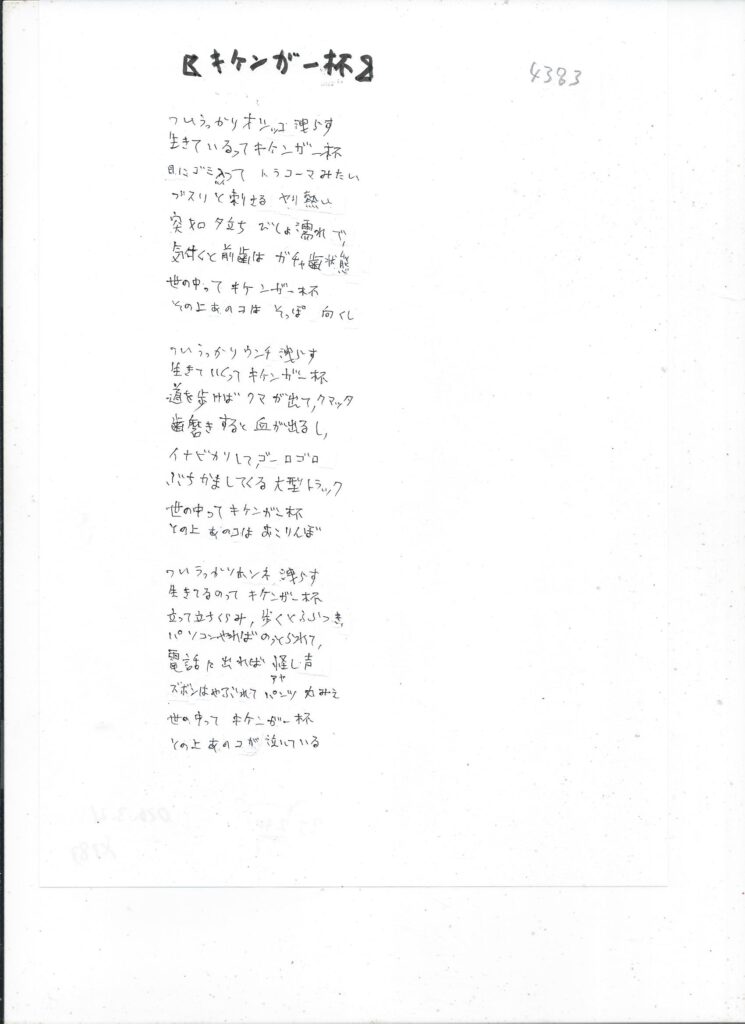 【キケンガー杯】
4383
ついうっかりオシッコ洩らす
生きているってキケンガー杯
目にゴミ入って トラコーマみたい
ブスリと刺さる ヤリ熱い
突如夕立ち びしょ濡れで、
気付くと前歯は ガチャ歯状態
世の中って キケンガー杯
その上あのコは そっぽ 向くし
ついうっかりウンチ洩らす
生きていくってキケンガー杯
道を歩けば クマが出て、クマッタ
歯磨きすると血が出るし、
イナビカリして、ゴーロゴロ
ぶちかましてくる大型トラック
世の中って キケンガー杯
その上 あのコは おこりんぼ
ついうっかりホンネ 洩らす
生きてるのって キケンガー杯
立って立ちくらみ、歩くとふらつき、
パソコンやればのっとられて、
電話た出れば 怪し声
アヤ
ズボンはやぶれて パンツ丸みえ
世の中って キケンガー杯
その上あのコが 泣いている